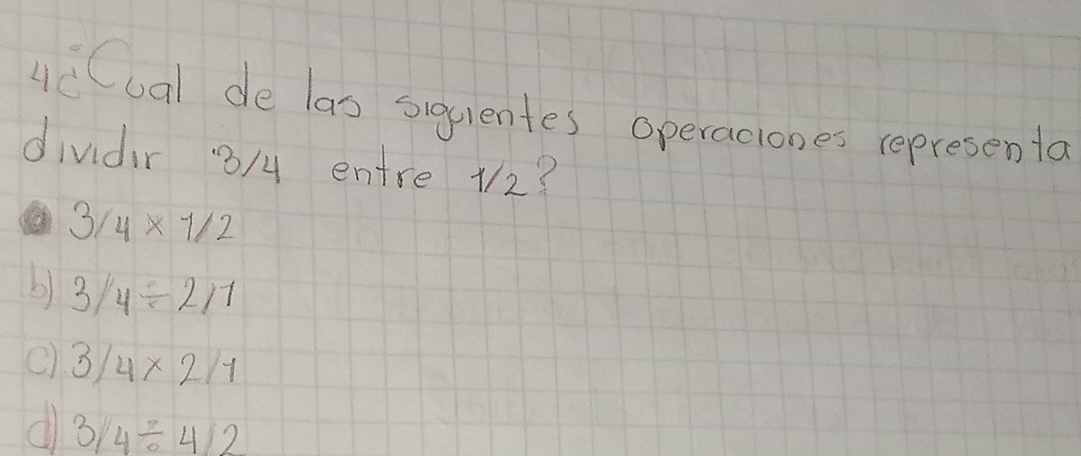 4¿Cual de las siguientes operaciones representa
dividir 3/4 entre 1/2?
3/4 × 1/2
b) 3/4 ÷ 2/1
c) 3/4 × 2/1
d) 3/4 ÷ 4/2